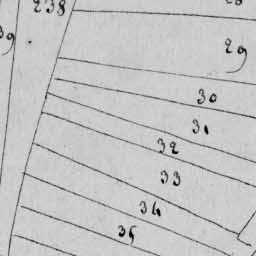 238
29
30
31
32
33
34
35